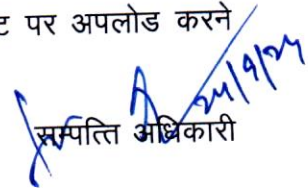 ट पर अपलोड करने
24/9/24
सम्पत्ति अधिकारी